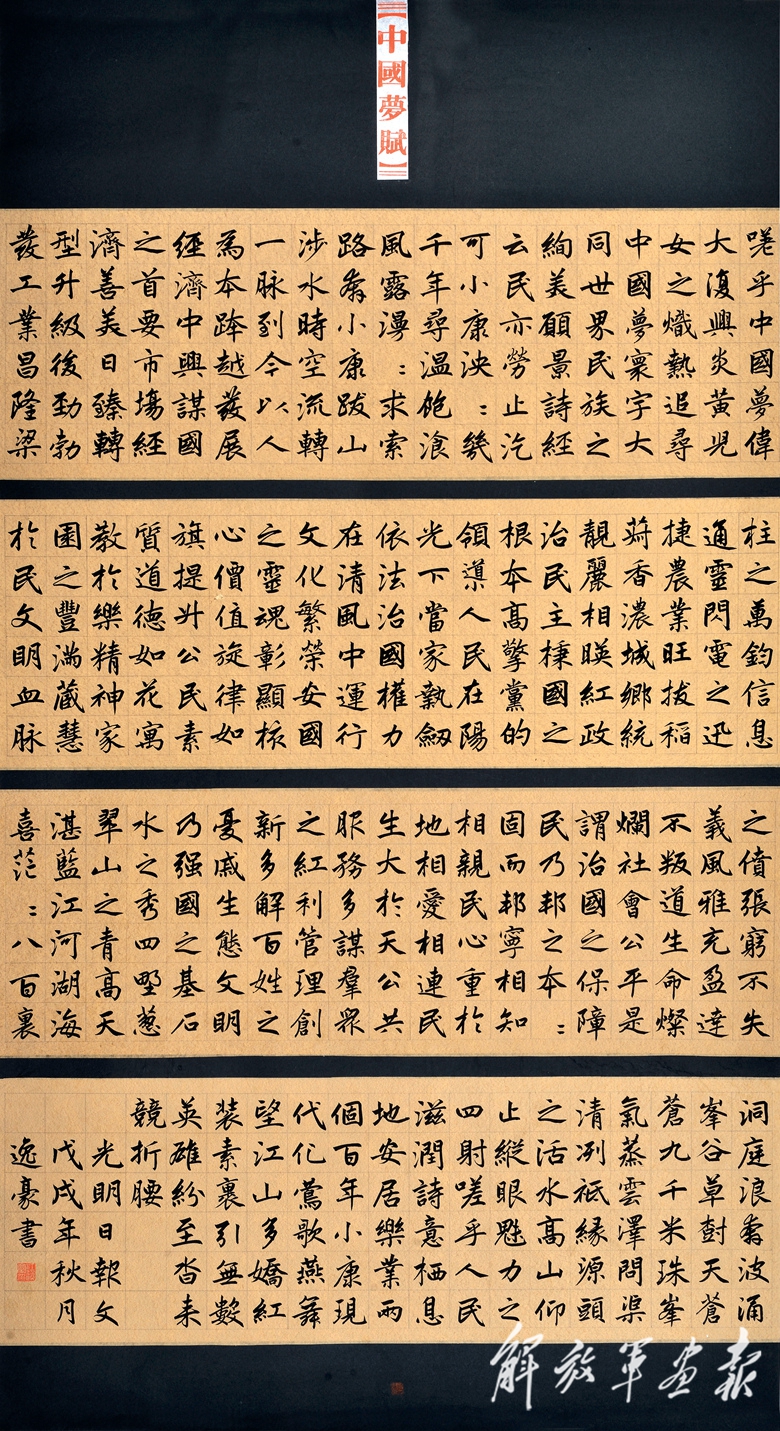 中國夢賦
嗟乎中國夢偉
大復興炎黃兒
女之熾熱追尋
中國夢寰宇大
同世界民族之
絢美願景詩經
云民亦勞止汔
可小康泱：幾
千年尋溫飽飡
風露漫：求索
路奔小康跋山
涉水時空流轉
一脈到今以人
為本跨越發展
經濟中興謀國
之首要市場經
濟善美日臻轉
型升級後勁勃
發工業昌隆梁
柱之萬鈞信息
通靈閃電之迅
捷農業旺拔稻
蒔香濃城鄉統
靚麗相暎紅政
治民主秉國之
根本高擎黨的
領導人民在陽
光下當家執劍
依法治國權力
在清風中運行
文化繁榮安國
之靈魂彰顯核
心價值旋律如
旗提升公民素
質道德如花寓
教於樂精神家
園之豐满蔵慧
於民文明血脉
之僨張窮不失
義風雅充盈達
不叛道生命燦
爛社會公平是
謂治國之保障
民乃邦之本：
固而邦寧相知
相親民心重於
地相愛相連民
生大於天公共
服務多謀羣眾
之紅利管理創
新多解百姓之
憂戚生態文明
乃强國之基石
水之秀四野葱
翠山之青高天
湛藍江河湖海
喜茫：八百裏
洞庭浪奔波涌
峯谷草樹天蒼
蒼九千米珠峯
氣蒸雲澤問渠
清冽祗緣源頭
之活水高山仰
止縱眼魅力之
四射嗟乎人民
滋潤詩意栖息
地安居樂業兩
個百年小康現
代化鶯歌燕舞
望江山多嬌紅
裝素裹引無數
英雄紛至沓来
競折腰
光明日報文
戊戌年秋月
逸豪書
解放軍画報